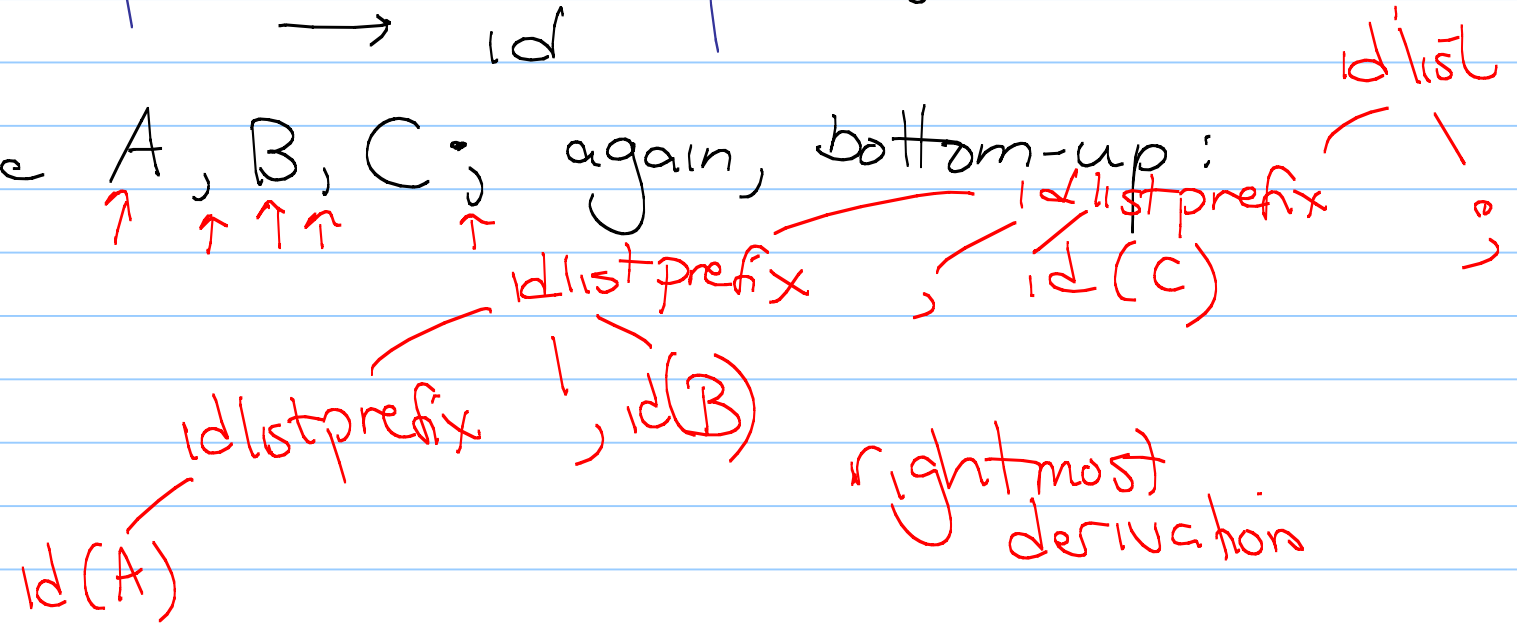 → id
idlist
A, B, C; again, bottom-up:
idlistprefix ;
idlistprefix , id(C)
idlistprefix , id(B)
rightmost
derivation
id(A)